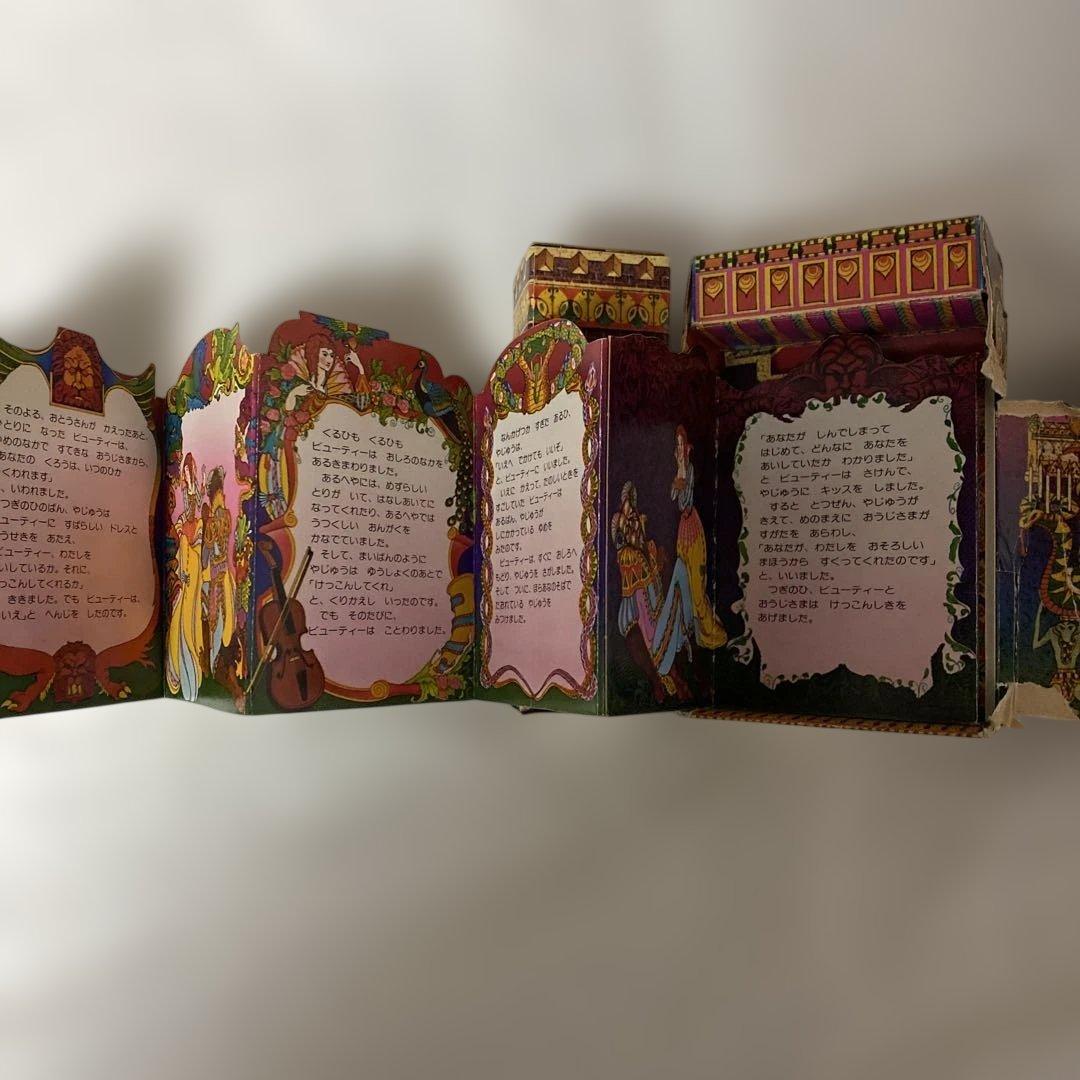 そのよる。おとうさんが かえったあと、
とりに なった ビューティーは、
めのなかで すてきな おうじさまから、
あなたの くろうは、いつのひか
くわれます」
、いわれました。
つぎのひのばん、やじゅうは
ューティーに すばらしい ドレスと
うせきを あたえ、
ビューティー、わたしを
いしているか。それに、
っこんしてくれるか」
ききました。でも ビューティーは、
いえ」と へんじを したのです。
くるひも くるひも
ビューティーは おしろのなかを
あるきまわりました。
あるへやには、めずらしい
とりが いて、はなしあいてに
なってくれたり、あるへやでは
うつくしい おんがくを
かなでていました。
そして、まいばんのように
やじゅうは ゆうしょくのあとで
「けっこんしてくれ」
と、くりかえし いったのです。
でも そのたびに、
ビューティーは ことわりました。
なんかげつか すぎた あるひ、
やじゅうは、
「いえへ でかけても いいぞ」
と、ビューティーに いいました。
いえに かえって、たのしいときを
すごしていた ビューティーは
あるばん、やじゅうが
しにかかっている ゆめを
みたのです。
ビューティーは、すぐに おしろへ
もどり、やじゅうを さがしました。
そして ついに、ほらあなのそばで
たおれている やじゅうを
みつけました。
「あなたが しんでしまって
はじめて、どんなに あなたを
あいしていたか わかりました」
と ビューティーは さけんで、
やじゅうに キッスを しました。
すると とつぜん、やじゅうが
きえて、めのまえに おうじさまが
すがたを あらわし、
「あなたが、わたしを おそろしい
まほうから すくってくれたのです」
と、いいました。
つぎのひ、ビューティーと
おうじさまは けっこんしきを
あげました。